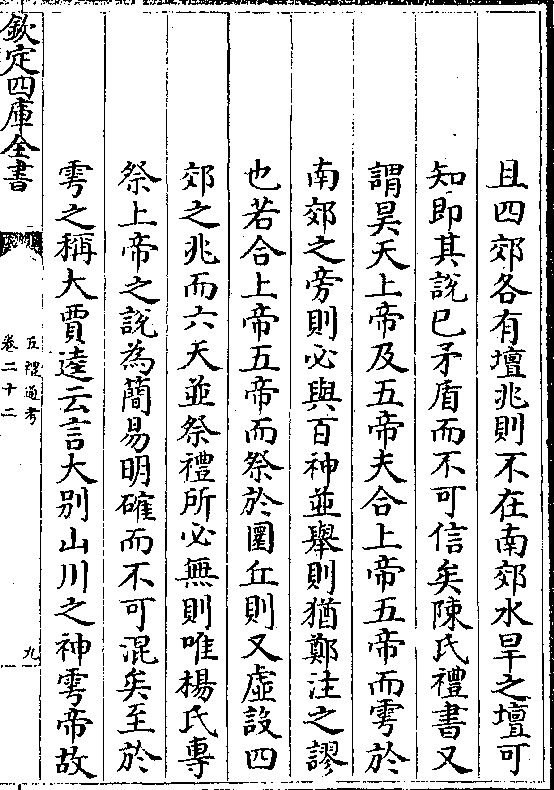 且四郊各有壇兆則不在南郊水旱之壇可
知即其說已矛盾而不可信矣陳氏禮書又
謂昊天上帝及五帝夫合上帝五帝而雩於
南郊之旁則必與百神並舉則猶鄭注之謬
也若合上帝五帝而祭於圜丘則又虛設四
郊之兆而六天並祭禮所必無則唯楊氏專
祭上帝之說為簡易明確而不可混矣至於
雩之稱大賈逵云言大別山川之神雩帝故
欽定四庫全書
五禮通考
卷二十二
九